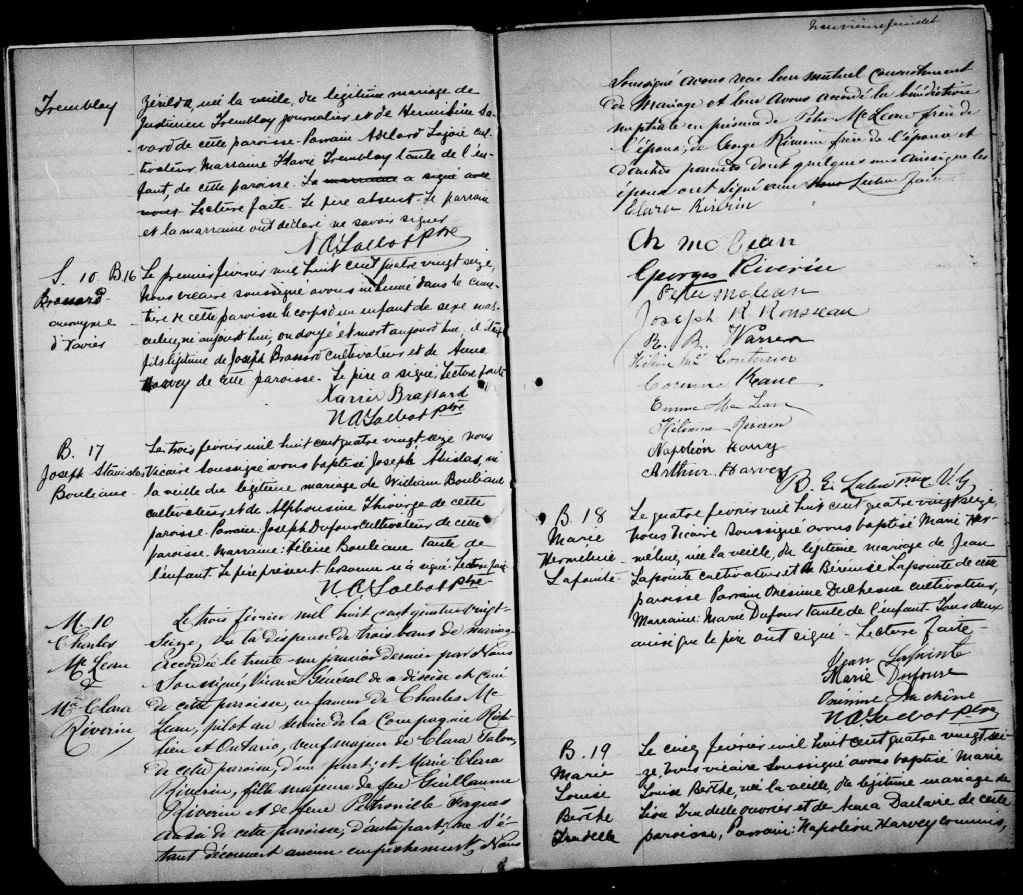 Tremblay
Zérilda, née la veille, du légitime mariage de
Justinien Tremblay journalier et de Herméline Sa-
vard de cette paroisse. Parrain Adélard Lajoie cul-
tivateur, Marraine Flavie Tremblay tante de l'en-
fant, de cette paroisse. La marraine a signé avec
nous. Lecture faite. Le père absent. Le parrain
et la marraine ont déclaré ne savoir signer
N A Talbot ptre
S. 10 B. 16
Brassard
anonyme
d'Xavier
Le premier février mil huit cent quatre vingt seize,
Nous vicaire soussigné avons inhumé dans le cime-
tière de cette paroisse le corps d'un enfant de sexe mas-
culin, né aujourd'hui, ondoyé et mort aujourd'hui, il était
fils légitime de Joseph Brassard cultivateur et de Anna
Harvey de cette paroisse. Le père a signé, Lecture faite
Xavier Brassard
N A Talbot ptre
B. 17
Joseph Stanislas
Bouliane
Le trois février mil huit cent quatre vingt seize nous
Vicaire soussigné avons baptisé Joseph Stanislas, né
la veille du légitime mariage de William Bouliane
cultivateur et de Alphonsine Thivierge de cette
paroisse. Parrain: Joseph Dufour cultivateur de cette
paroisse. Marraine: Hélène Bouliane tante de
l'enfant. Le père présent. Personne n'a signé. Lecture faite
N A Talbot ptre
M. 10
Charles
Mc Lean
&
Mie Clara
Riverin
Le trois février mil huit cent quatre vingt-
seize, vu la dispense de trois bans de mariage
accordée le trente un janvier dernier par Nous
Soussigné, Vicaire Général de ce diocèse et curé
de cette paroisse, en faveur de Charles Mc
Lean, pilot au service de la Compagnie Riche-
lieu et Ontario, veuf majeur de Clara Talon,
de cette paroisse, d'une part; et Marie Clara
Riverin, fille majeure de feu Guillaume
Riverin et de feue Pétronille Forgues
aussi de cette paroisse, d'autre part; ne s'é-
tant découvert aucun empêchement, Nous
Soussigné avons reçu leur mutuel consentement
de Mariage et leur avons accordé la bénédiction
nuptiale en présence de Peter McLean frère de
l'époux, de George Riverin frère de l'épouse et
d'autres parents dont quelques uns ainsi que les
époux ont signé avec Nous Lecture faite
Clara Riverin
Ch McLean
Georges Riverin
Peter McLean
Joseph K Rousseau
R. B. Warren
Corinne Kane
Emma Mc Lean
Hélérine Riverin
Napoléon Harvey
Arthur Harvey
B. 18
Marie
Herméline
Lapointe
Le quatre février mil huit cent quatre vingt seize,
Nous Vicaire soussigné avons baptisé Marie Her-
méline, née la veille, du légitime mariage de Jean
Lapointe cultivateur et de Bérénise Lapointe de cette
paroisse Parrain Onésime Duchesne cultivateur,
Marraine: Marie Dufour tante de l'enfant. Tous deux
ainsi que le père ont signé. Lecture faite
Jean Lapointe
Marie Dufour
N A Talbot ptre
B. 19
Marie
Louise
Berthe
Trudelle
Le cinq février mil huit cent quatre vingt sei-
ze, Nous vicaire soussigné avons baptisé Marie
Louise Berthe, née la veille, du légitime mariage de
Léon Trudelle ouvrier et de Anna Daclaire de cette
paroisse, Parrain: Napoléon Harvey commis,